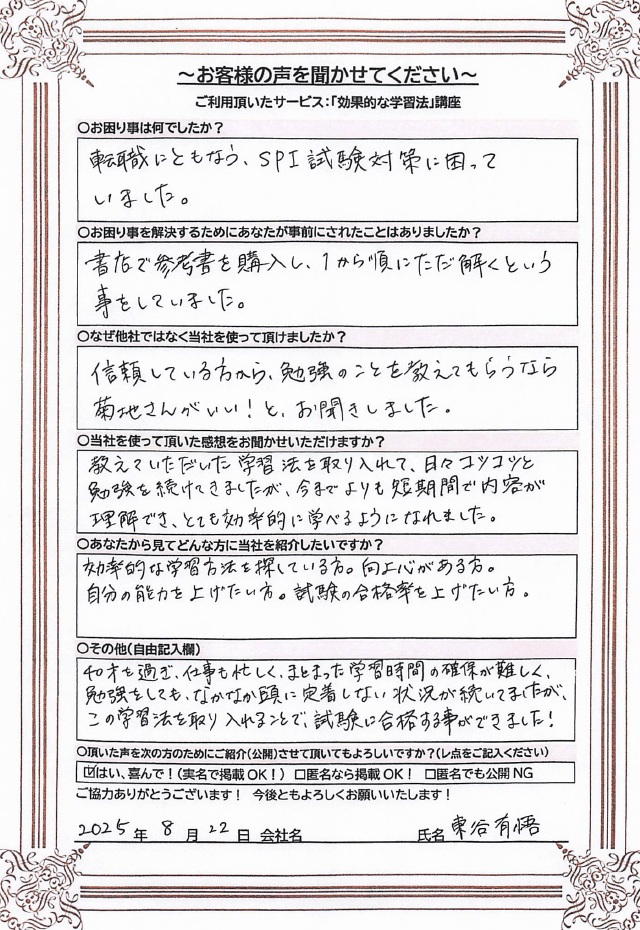 ～お客様の声を聞かせてください～
ご利用頂いたサービス：「効果的な学習法」講座
○お困り事は何でしたか？
転職にともなう、SPI試験対策に困って
いました。
○お困り事を解決するためにあなたが事前にされたことはありましたか？
書店で参考書を購入し、1から順にただ解くという
事をしていました。
○なぜ他社ではなく当社を使って頂けましたか？
信頼している方から、勉強のことを教えてもらうなら
菊地さんがいい！と、お聞きしました。
○当社を使って頂いた感想をお聞かせいただけますか？
教えていただいた学習法を取り入れて、日々コツコツと
勉強を続けてきましたが、今までよりも短期間で内容が
理解でき、とても効率的に学べるようになれました。
○あなたから見てどんな方に当社を紹介したいですか？
効率的な学習方法を探している方。向上心がある方。
自分の能力を上げたい方。試験の合格率を上げたい方。
○その他（自由記入欄）
40才を過ぎ、仕事も忙しく、まとまった学習時間の確保が難しく、
勉強をしても、なかなか頭に定着しない状況が続いてましたが、
この学習法を取り入れることで、試験に合格する事ができました！
○頂いた声を次の方のためにご紹介（公開）させて頂いてもよろしいですか？（レ点をご記入ください）
☑はい、喜んで！（実名で掲載OK！） □匿名なら掲載OK！ □匿名でも公開NG
ご協力ありがとうございます！ 今後ともよろしくお願いいたします！
2025年 8月 22日 会社名 氏名 東谷有悟